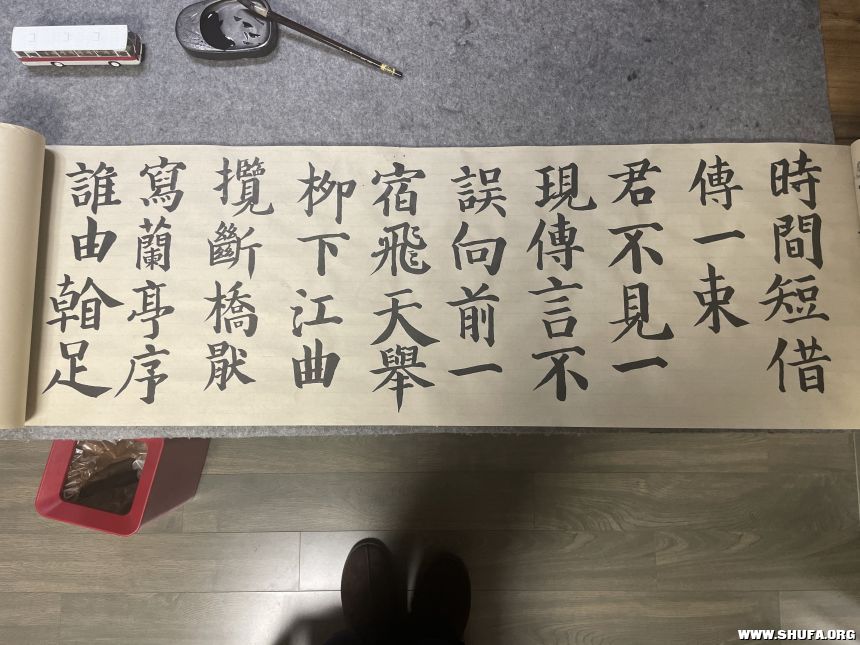 時間短借
傳一束
君不見一
現傳言不
誤向前一
宿飛天舉
柳下江曲
攬斷橋厭
寫蘭亭序
誰由足
WWW.SHUFA.ORG